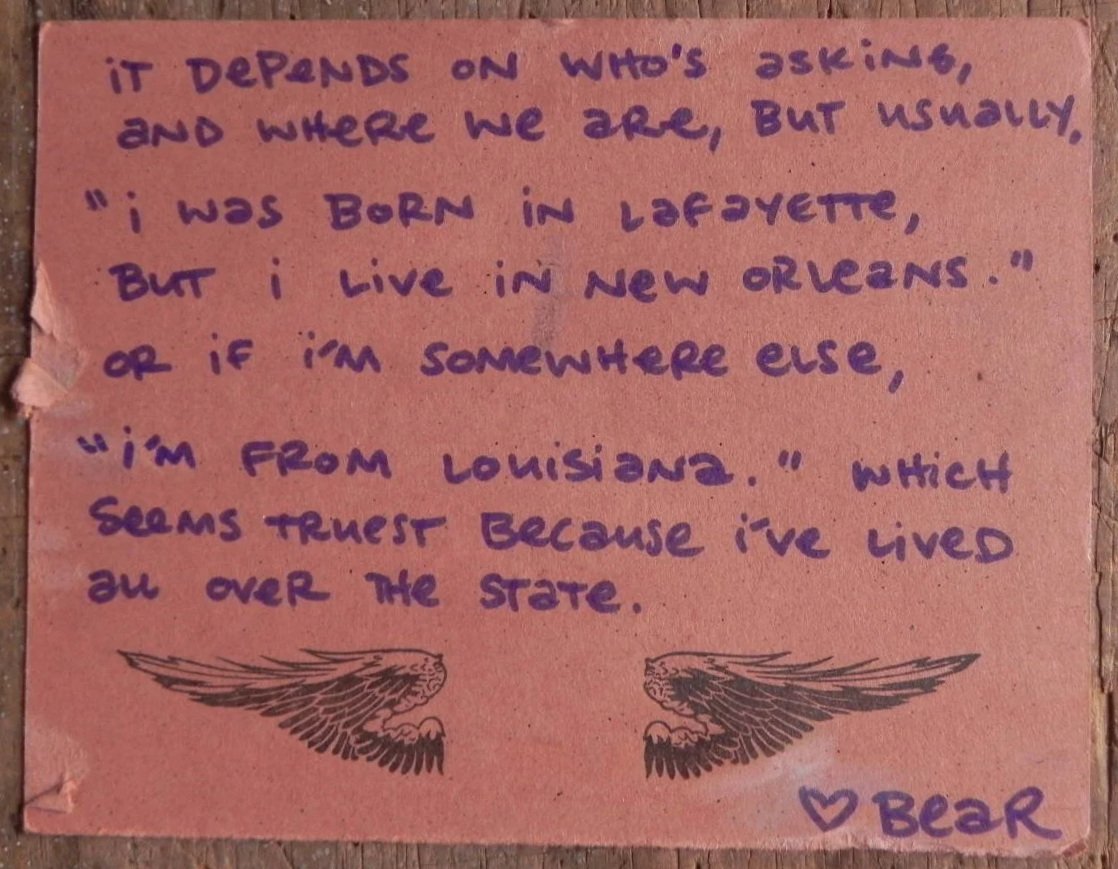 iT DePeNDS ON WHO'S asKiNG,
aND WHeRe we aRe, BuT usuaLLY,
"i was BORN iN LaFaYETTe,
BuT i Live iN New ORLeaNS."
OR iF i'M SOMeWHeRe eLSe,
"i'M FROM LOuiSiaNa." WHicH
SeeMS TRuesT Because i've LiveD
aLL OVeR THe STaTe.
♡ BeaR